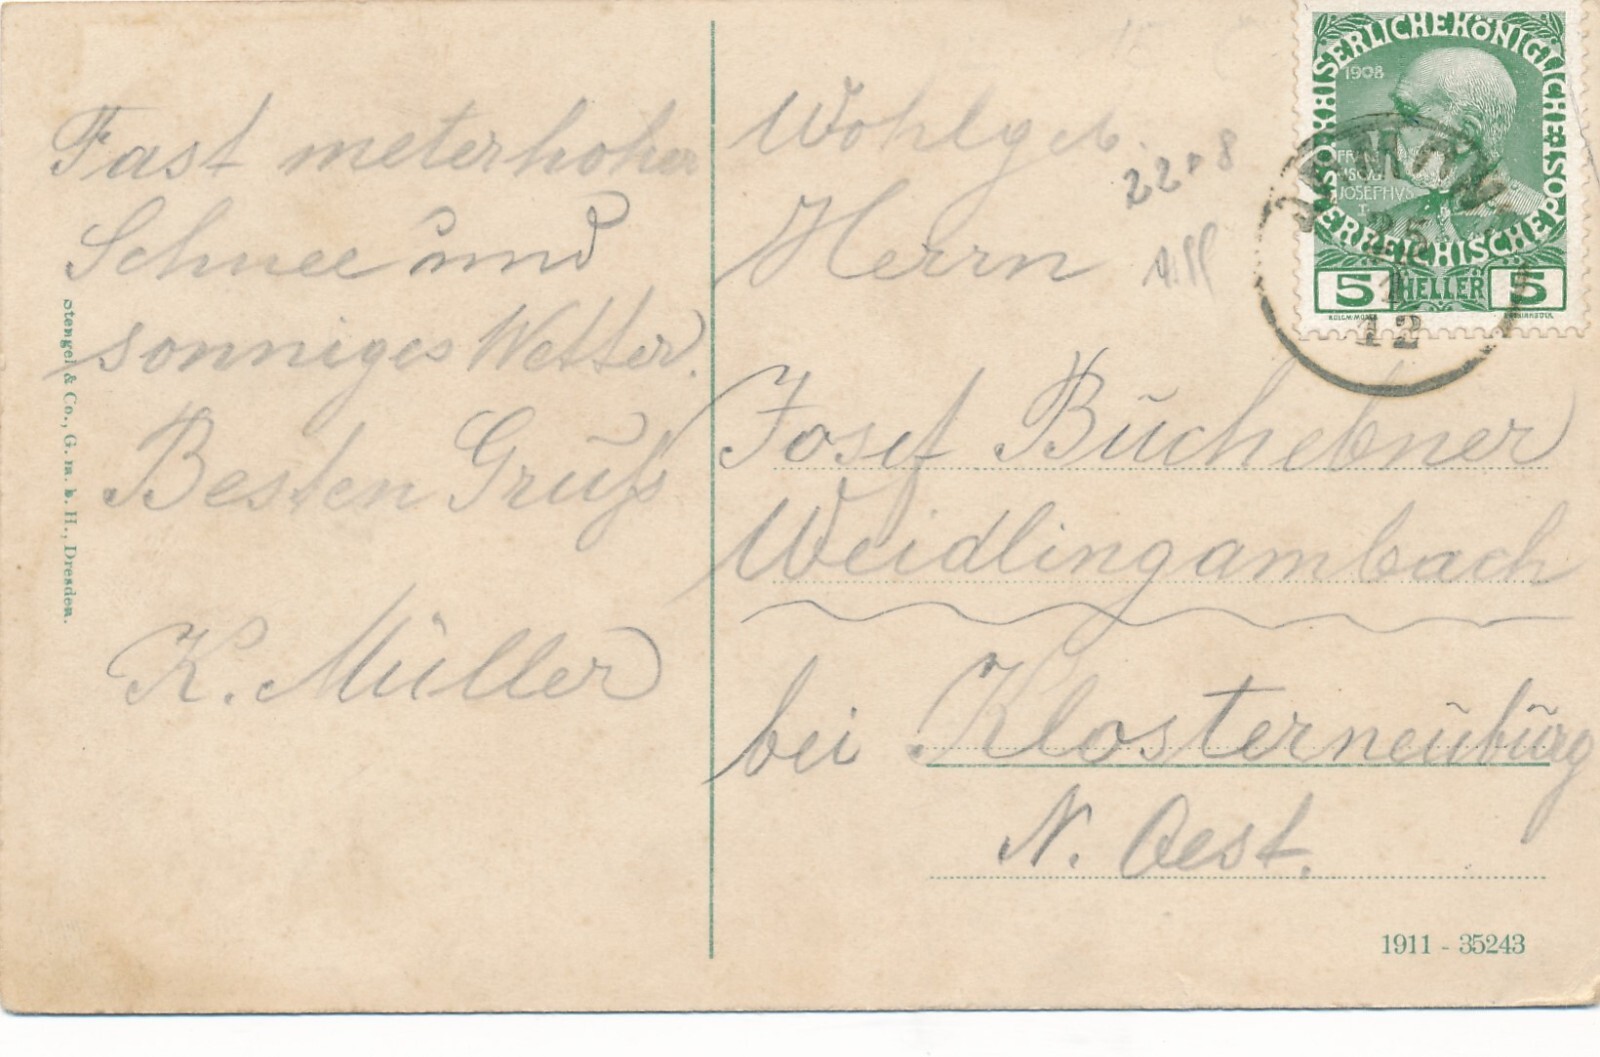 Fast meterhoher
Schnee und
sonniges Wetter.
Besten Gruß
K. Müller
Stengel & Co., G. m. b. H., Dresden.
Wohlgeb.
Herrn
22+8
Josef Buchebner
Weidlingambach
bei Klosterneuburg
N. Oest.
KAISERLICHEKÖNIGLICHE ÖSTERREICHISCHE POST
1908
FRANCISCUS
JOSEPHVS
I
5 HELLER 5
25
1
12
1911 - 35243